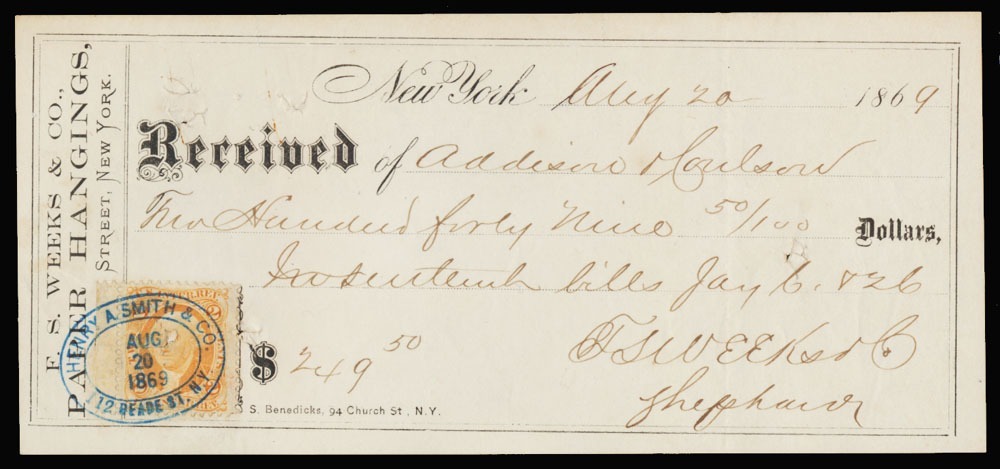 F. S. WEEKS & CO.,
PAPER HANGINGS,
STREET, NEW YORK.
New York Aug 20 1869
Received of Addison & Coulson
Two Hundred forty Nine 50/100 Dollars,
bills Jay 6. & 26
$ 249 50
F S WEEKS & Co
HENRY A. SMITH & CO.
AUG
20
1869
112 READE ST. N.Y.
S. Benedicks, 94 Church St., N.Y.